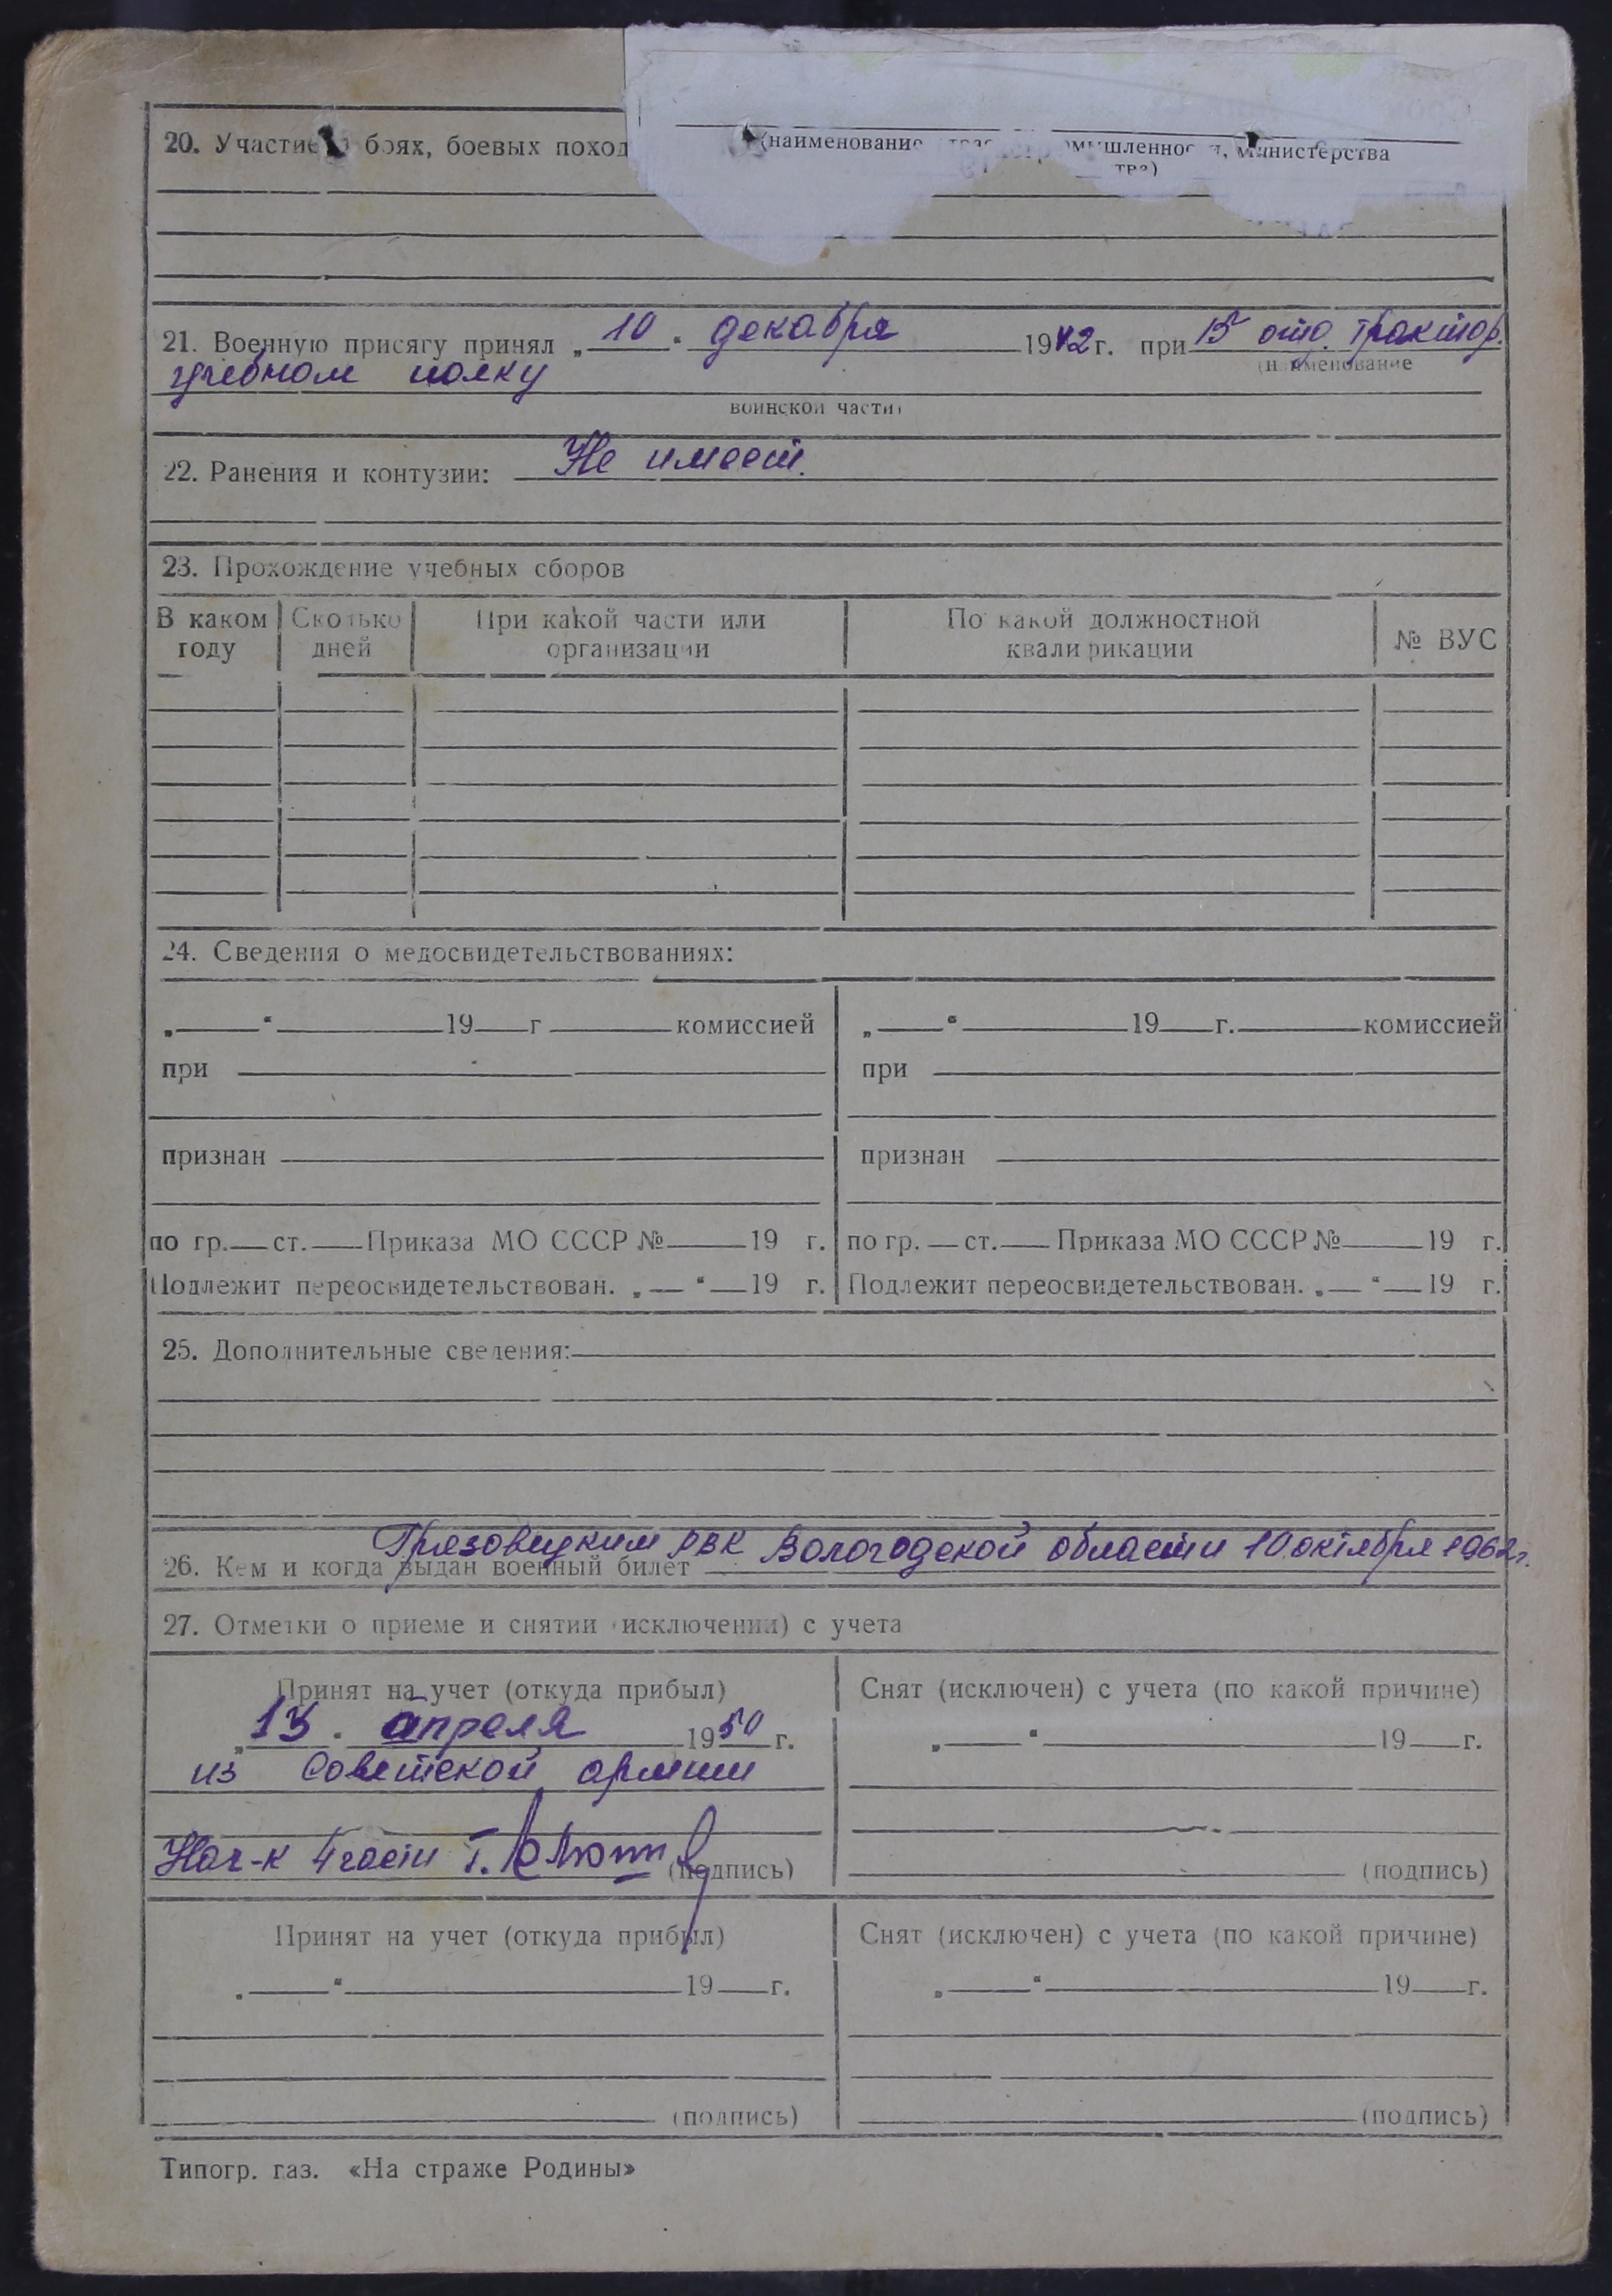 20. Участие боях, боевых поход
(наименование мышленности, министерства
тва)
21. Военную присягу принял „ 10 " декабря 1942 г. при 15 отд. трактор.
(наименование
учебном полку
воинской части)
22. Ранения и контузии: Не имеет.
23. Прохождение учебных сборов
В каком году Сколько дней При какой части или организации По какой должностной квалификации № ВУС
24. Сведения о медосвидетельствованиях:
„ “ 19 г комиссией „ “ 19 г. комиссией
при при
признан признан
по гр. ст. Приказа МО СССР № 19 г. по гр. ст. Приказа МО СССР № 19 г.
Подлежит переосвидетельствован. „ “ 19 г. Подлежит переосвидетельствован. „ “ 19 г.
25. Дополнительные сведения:
26. Кем и когда выдан военный билет Грязовецким РВК Вологодской области 10 октября 1962г.
27. Отметки о приеме и снятии (исключении) с учета
Принят на учет (откуда прибыл) Снят (исключен) с учета (по какой причине)
„13 “ апреля 1950 г. „ “ 19 г.
из Советской армии
Нач-к 4 части (подпись) (подпись)
Принят на учет (откуда прибыл) Снят (исключен) с учета (по какой причине)
„ “ 19 г. „ “ 19 г.
(подпись) (подпись)
Типогр. газ. «На страже Родины»